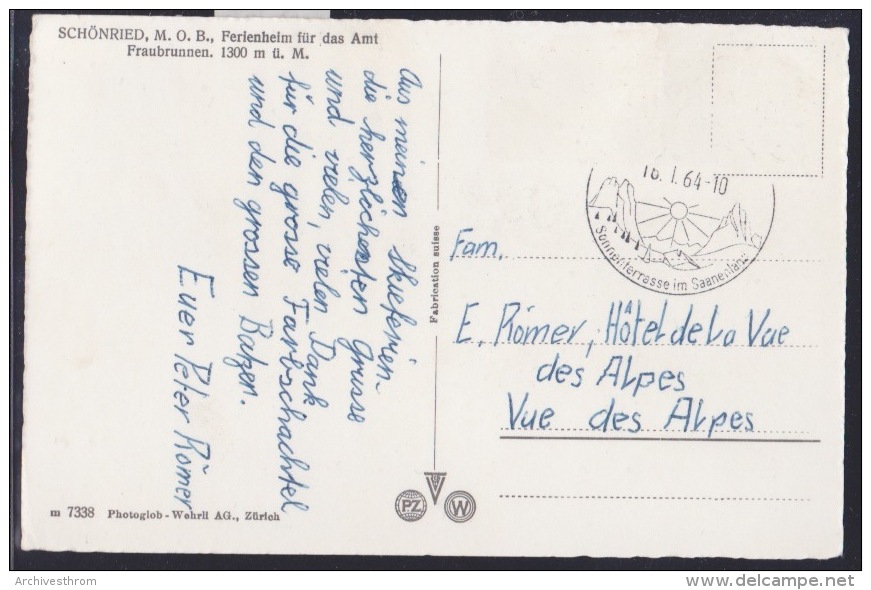 SCHÖNRIED, M. O. B., Ferienheim für das Amt
Fraubrunnen. 1300 m ü. M.
Aus meinen Skiferien
die herzlichsten Grüsse
und vielen, vielen Dank
für die grosse Farbschachtel
und den grossen Batzen.
Euer Peter Römer
Fabrication suisse
18. I. 64-10
Sonnenterrasse im Saanenland
Fam.
E. Römer, Hôtel de La Vue
des Alpes
Vue des Alpes
PZ
W
m 7338 Photoglob-Wehrli AG., Zürich
Archivesthrom
delcampe.net